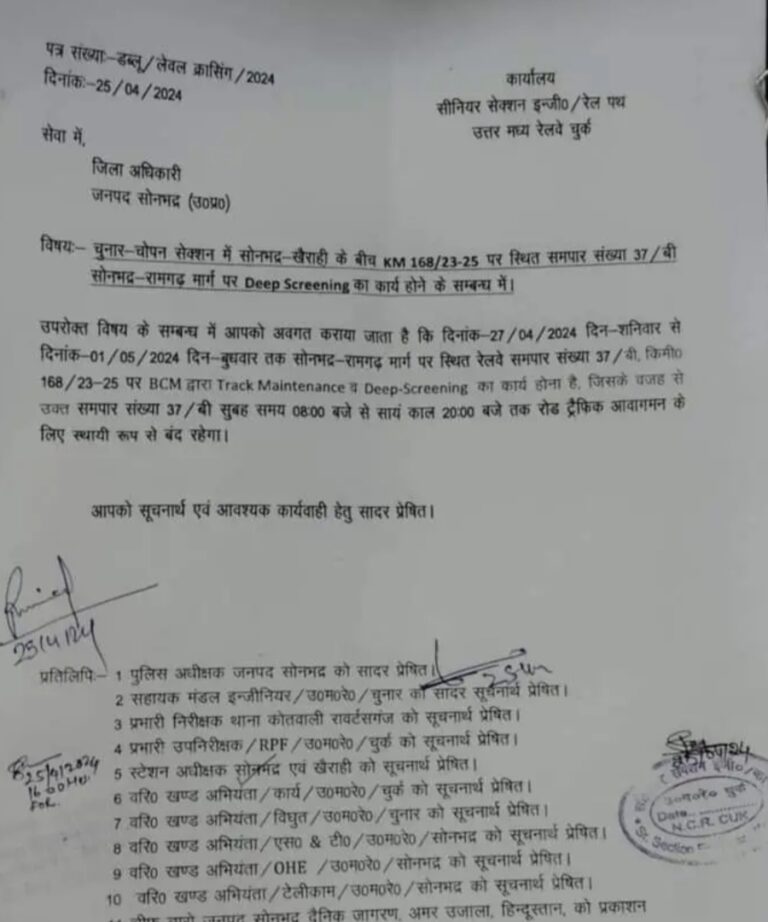 पत्र संख्याः–डब्लू/लेवल क्रासिंग/2024
दिनांकः–25/04/2024
कार्यालय
सीनियर सेक्शन इन्जी०/रेल पथ
उत्तर मध्य रेलवे चुर्क
सेवा में,
जिला अधिकारी
जनपद सोनभद्र (उ०प्र०)
विषयः– चुनार–चोपन सेक्शन में सोनभद्र–खैराही के बीच KM 168/23-25 पर स्थित समपार संख्या 37/बी
सोनभद्र–रामगढ़ मार्ग पर Deep Screening का कार्य होने के सम्बन्ध में।
उपरोक्त विषय के सम्बन्ध में आपको अवगत कराया जाता है कि दिनांक–27/04/2024 दिन–शनिवार से
दिनांक–01/05/2024 दिन–बुधवार तक सोनभद्र–रामगढ़ मार्ग पर स्थित रेलवे समपार संख्या 37/बी, किमी०
168/23-25 पर BCM द्वारा Track Maintenance व Deep-Screening का कार्य होना है, जिसके वजह से
उक्त समपार संख्या 37/बी सुबह समय 08:00 बजे से सायं काल 20:00 बजे तक रोड ट्रैफिक आवागमन के
लिए स्थायी रूप से बंद रहेगा।
आपको सूचनार्थ एवं आवश्यक कार्यवाही हेतु सादर प्रेषित।
25/4/24
प्रतिलिपिः– 1 पुलिस अधीक्षक जनपद सोनभद्र को सादर प्रेषित।
2 सहायक मंडल इन्जीनियर/उ०म०रे०/चुनार को सादर सूचनार्थ प्रेषित।
3 प्रभारी निरीक्षक थाना कोतवाली रावर्टसगंज को सूचनार्थ प्रेषित।
4 प्रभारी उपनिरीक्षक/RPF/उ०म०रे०/चुर्क को सूचनार्थ प्रेषित।
5 स्टेशन अधीक्षक सोनभद्र एवं खैराही को सूचनार्थ प्रेषित।
25/4/2024
6 वरि० खण्ड अभियंता/कार्य/उ०म०रे०/चुर्क को सूचनार्थ प्रेषित।
7 वरि० खण्ड अभियंता/विघुत/उ०म०रे०/चुनार को सूचनार्थ प्रेषित।
8 वरि० खण्ड अभियंता/एस० & टी०/उ०म०रे०/सोनभद्र को सूचनार्थ प्रेषित।
9 वरि० खण्ड अभियंता/OHE /उ०म०रे०/सोनभद्र को सूचनार्थ प्रेषित।
10 वरि० खण्ड अभियंता/टेलीकाम/उ०म०रे०/सोनभद्र को सूचनार्थ प्रेषित।
जनपद सोनभद्र दैनिक जागरण, अमर उजाला, हिन्दूस्तान, को प्रकाशन
उ०म०रे० चुर्क
Date
N.C.R. CUK
Sr. Section